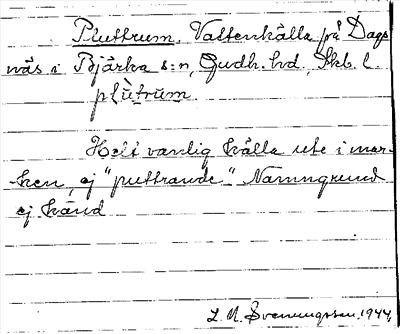 Pluttrum. Vattenkälla på Dags
näs i Bjärka s:n, Gudh. hd, Skb. l.
plùtrum.
Helt vanlig källa ute i mar-
ken, ej "puttrande". Namngrund
ej känd
L. M. Svenungsson, 1944